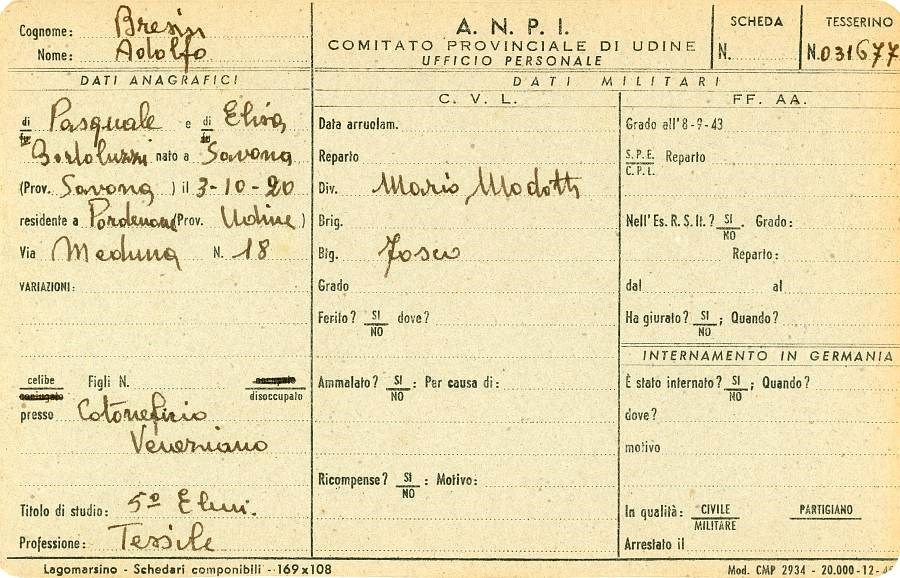 Cognome: Bresin
Nome: Adolfo
A. N. P. I.
COMITATO PROVINCIALE DI UDINE
UFFICIO PERSONALE
SCHEDA
N.
TESSERINO
N. 031677
DATI ANAGRAFICI
di Pasquale e di Elisa
Bortoluzzi nato a Savona
(Prov. Savona ) il 3-10-20
residente a Pordenone (Prov. Udine )
Via Meduna N. 18
VARIAZIONI:
celibe
coniugato
Figli N.
occupato
disoccupato
presso Cotonificio
Veneziano
Titolo di studio: 5º Elem.
Professione: Tessile
DATI MILITARI
C. V. L.
Data arruolam.
Reparto
Div. Mario Modotti
Brig.
Btg.
Grado
Ferito? SI NO dove?
Ammalato? SI NO : Per causa di:
Ricompense? SI NO : Motivo:
FF. AA.
Grado all'8-9-43
S.P.E. C.P.L. Reparto
Nell'Es. R. S. It.? SI NO . Grado:
Reparto:
dal al
Ha giurato? SI NO ; Quando?
INTERNAMENTO IN GERMANIA
È stato internato? SI NO ; Quando?
dove?
motivo
In qualità: CIVILE MILITARE PARTIGIANO
Arrestato il
Lagomarsino - Schedari componibili - 169x108
Mod. CMP 2934 - 20.000-12-